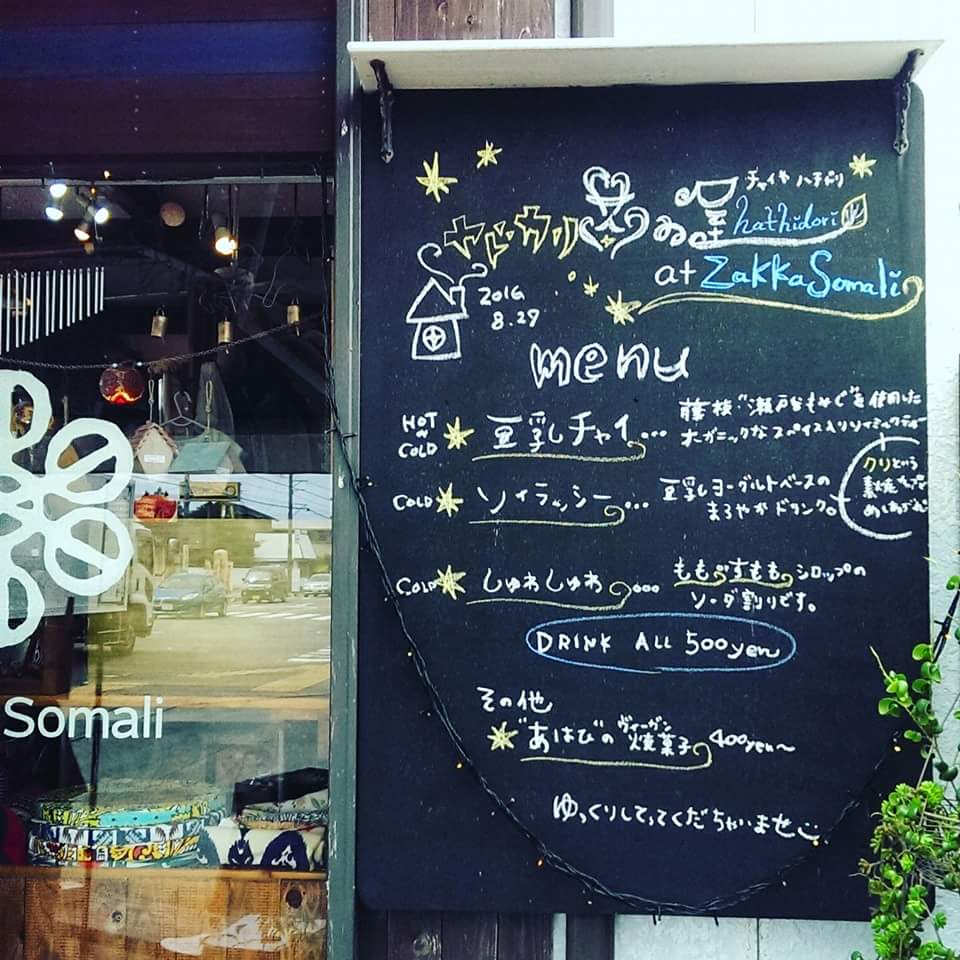 チャイヤ ハチドリ
ヤドカリ
hathidori
at Zakka Somali
2016
8.29
menu
HOT
or
COLD
豆乳チャイ...
藤枝"瀬戸谷もみじ"を使用した
オーガニックなスパイス入りソイミルクティー
クリという
素焼きの器で
めしあがれ
COLD ソイラッシー...
豆乳ヨーグルトベースの
まろやかドリンク。
COLD しゅわしゅわ...
もも・すもも シロップの
ソーダ割りです。
DRINK ALL 500yen
その他
"あはひ"の 焼菓子 400yen〜
ヴィーガン
ゆっくりしてってくだちゃいませ
Somali